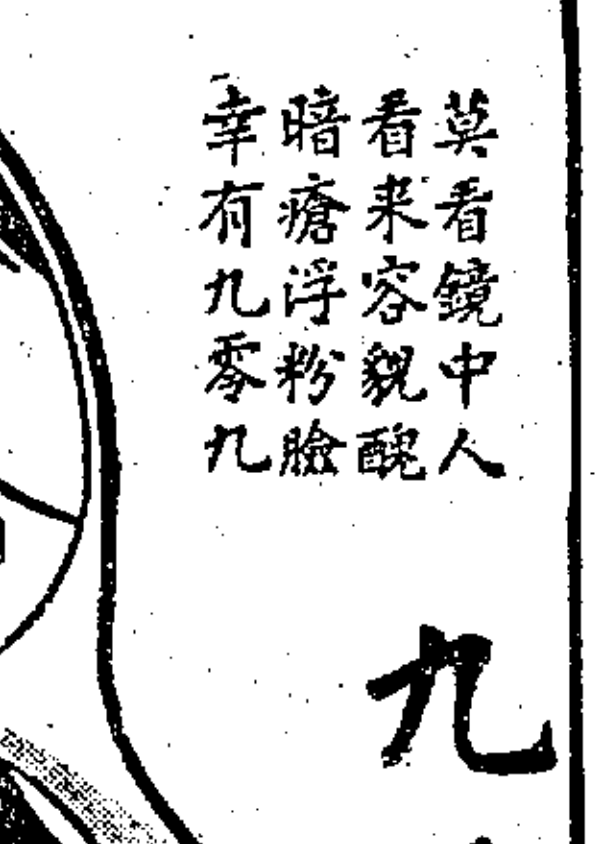 莫看鏡中人
看来容貌醜
暗瘡浮粉臉
幸有九零九
九